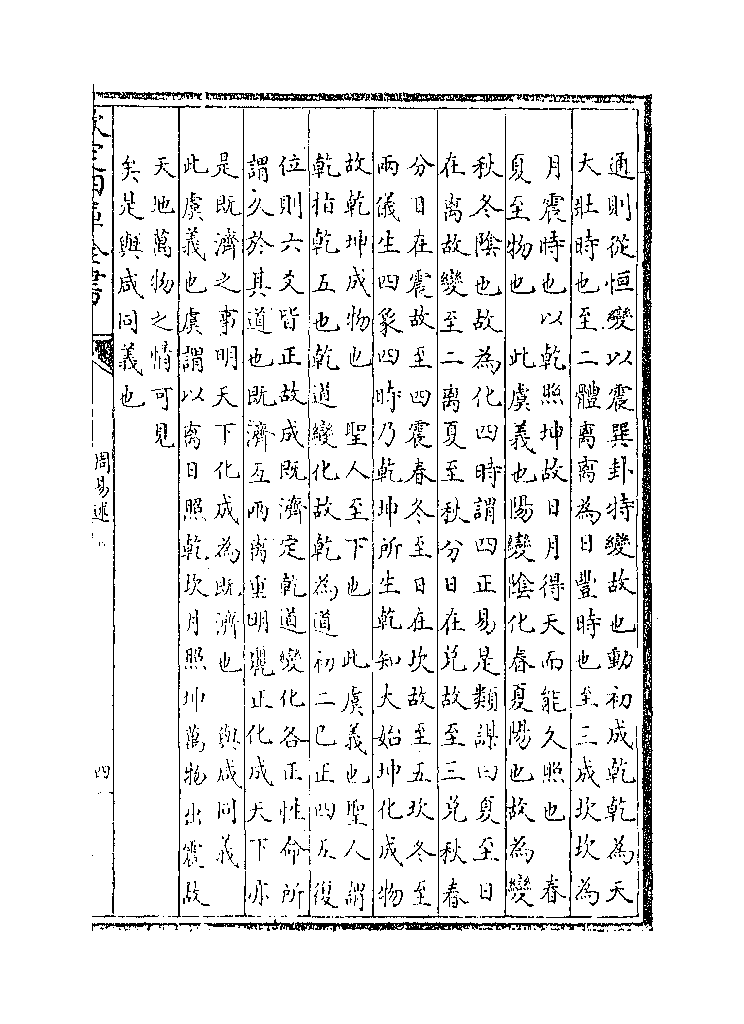 通則從恒變以震巽卦特變故也動初成乾乾為天
大壯時也至二體離離為日豐時也至三成坎坎為
月震時也以乾照坤故日月得天而能久照也　春
夏至物也　此虞義也陽變陰化春夏陽也故為變
秋冬陰也故為化四時謂四正易是類謀曰夏至日
在离故變至二离夏至秋分日在兌故至三兌秋春
分日在震故至四震春冬至日在坎故至五坎冬至
兩儀生四象四時乃乾坤所生乾知大始坤化成物
故乾坤成物也　聖人至下也　此虞義也聖人謂
乾指乾五也乾道變化故乾為道初二已正四五復
位則六爻皆正故成既濟定乾道變化各正性命所
謂久於其道也既濟互兩离重明麗正化成天下亦
是既濟之事明天下化成為既濟也　與咸同義
此虞義也虞謂以离日照乾坎月照坤萬物出震故
天地萬物之情可見
矣是與咸同義也
欽定四庫全書
周易述
四